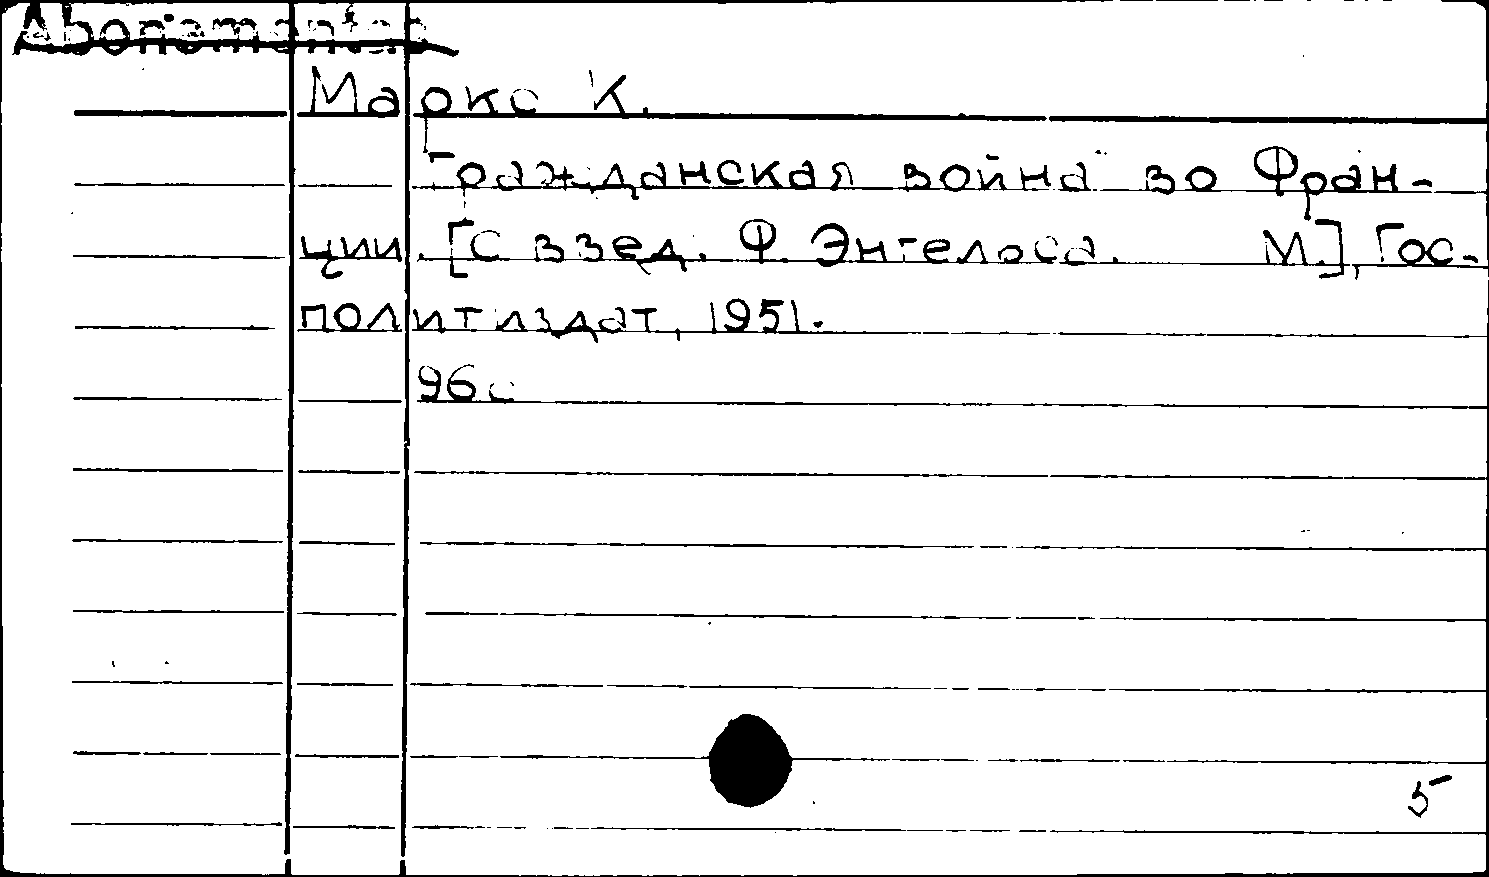 Abonementab
Маркс К.
Гражданская война во Фран-
ции. [С введ. Ф. Энгельса. М.], Гос-
политиздат, 1951.
96 с
5